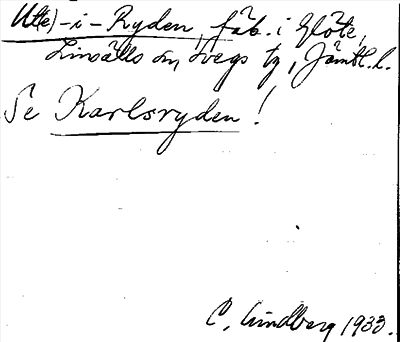 Ut(e)-i-Ryden, fäb. i Glöte,
Linsälls sn, Svegs tg, Jämtl. l.
Se Karlsryden!
C. Lindberg 1933.